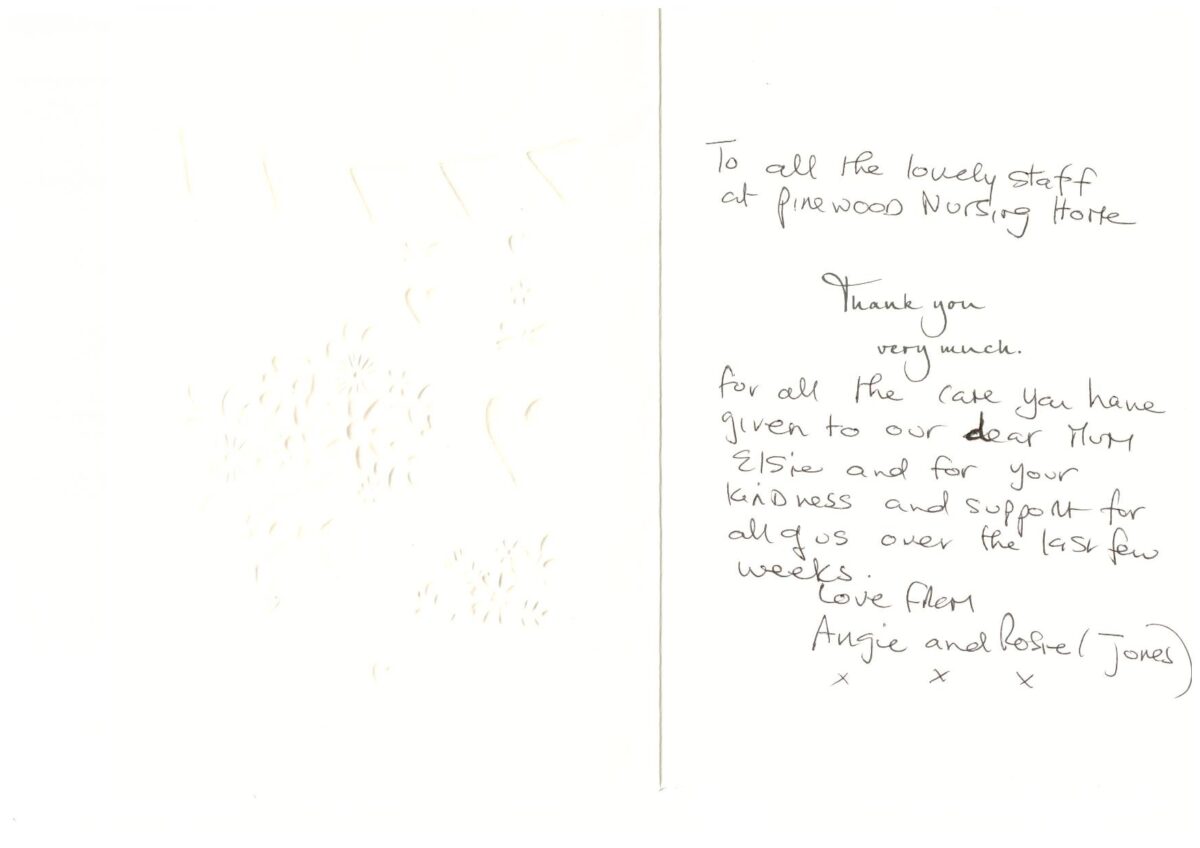 To all the lovely staff
at Pinewood Nursing Home
Thank you
very much.
for all the care you have
given to our dear Mum
Elsie and for your
kindness and support for
all of us over the last few
weeks.
Love from
Angie and Rosie (Jones)
x x x